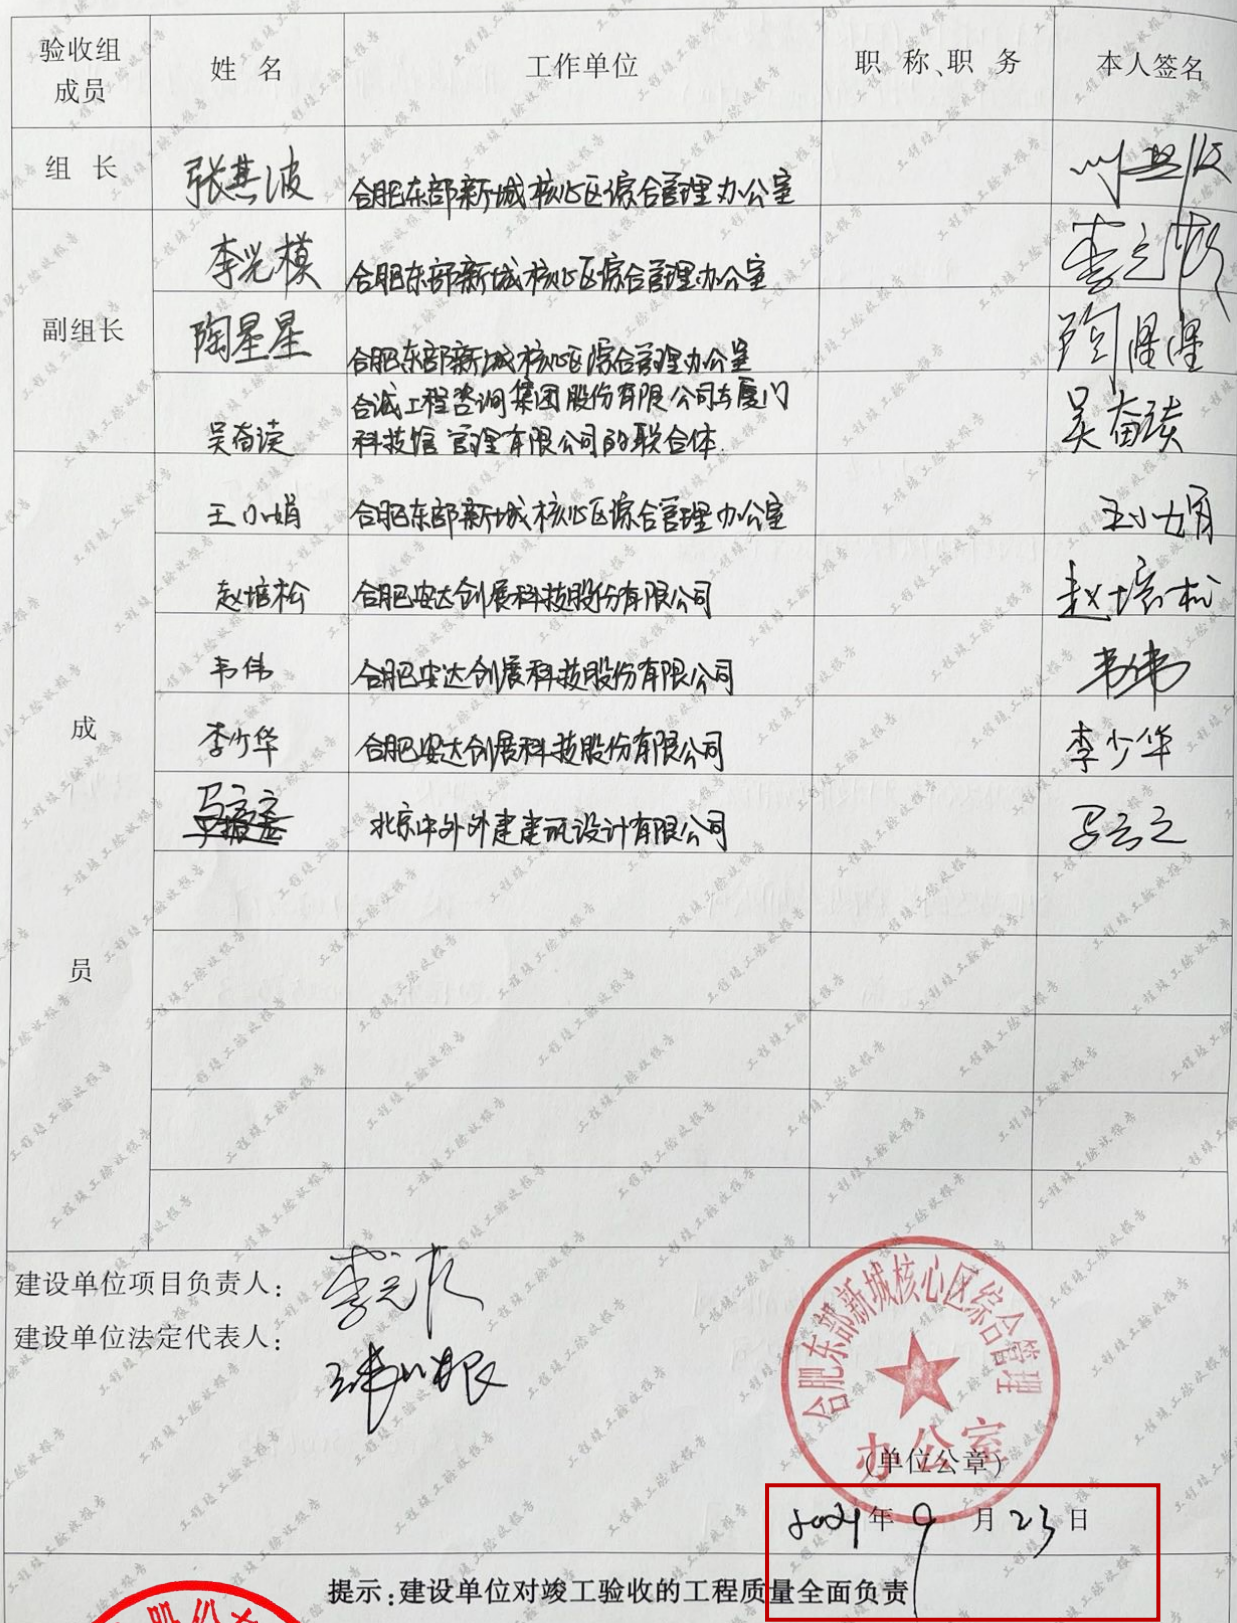 验收组成员 姓 名 工作单位 职 称、职 务 本人签名
组 长 张其波 合肥东部新城核心区综合管理办公室
副组长 李光模 合肥东部新城核心区综合管理办公室
陶星星 合肥东部新城核心区综合管理办公室 陶星星
吴奋读 合诚工程咨询集团股份有限公司与厦门
科技馆管理有限公司的联合体. 吴奋读
成 员 王小娟 合肥东部新城核心区综合管理办公室 王小娟
赵培松 合肥安达创展科技股份有限公司 赵培松
韦伟 合肥安达创展科技股份有限公司 韦伟
李少华 合肥安达创展科技股份有限公司 李少华
北京中外建建筑设计有限公司
建设单位项目负责人:
建设单位法定代表人:
合肥东部新城核心区综合管理
办公室
(单位公章)
年 9 月 23 日
提示:建设单位对竣工验收的工程质量全面负责
股份有
工程竣工验收报告